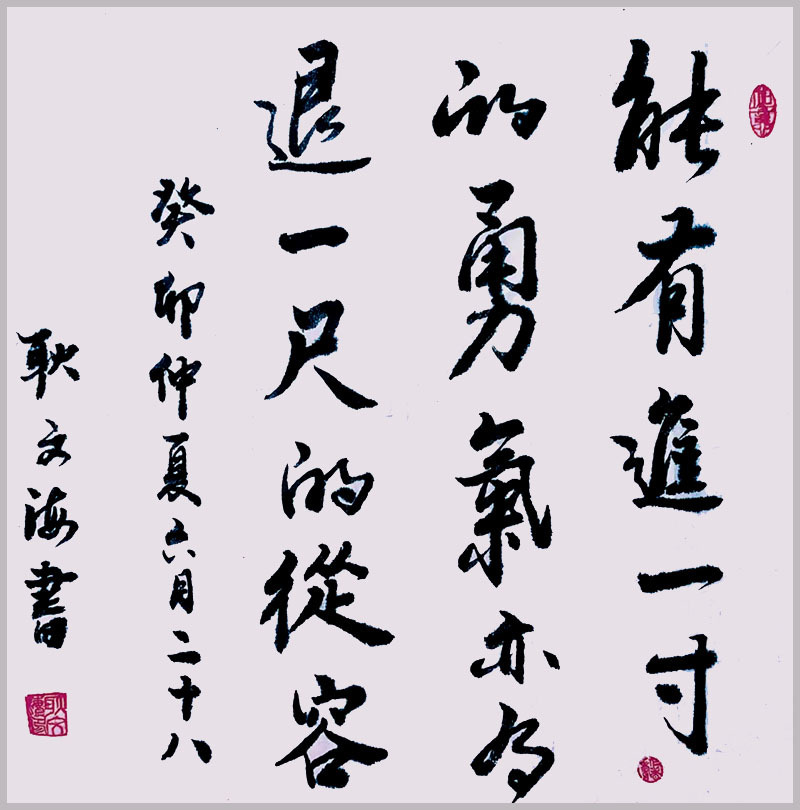 能有進一寸
的勇氣亦为
退一尺的從容
癸卯仲夏六月二十八
耿文海書